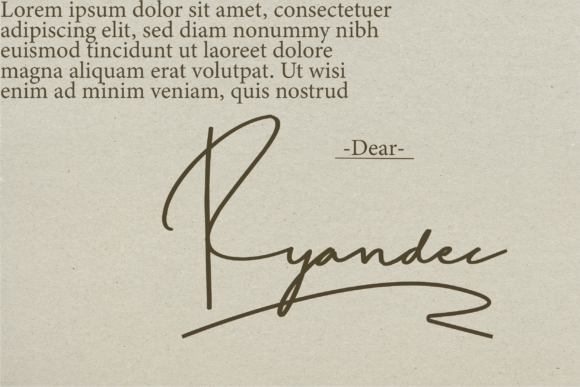 Lorem ipsum dolor sit amet, consectetuer
adipiscing elit, sed diam nonummy nibh
euismod tincidunt ut laoreet dolore
magna aliquam erat volutpat. Ut wisi
enim ad minim veniam, quis nostrud
-Dear-
Ryandec